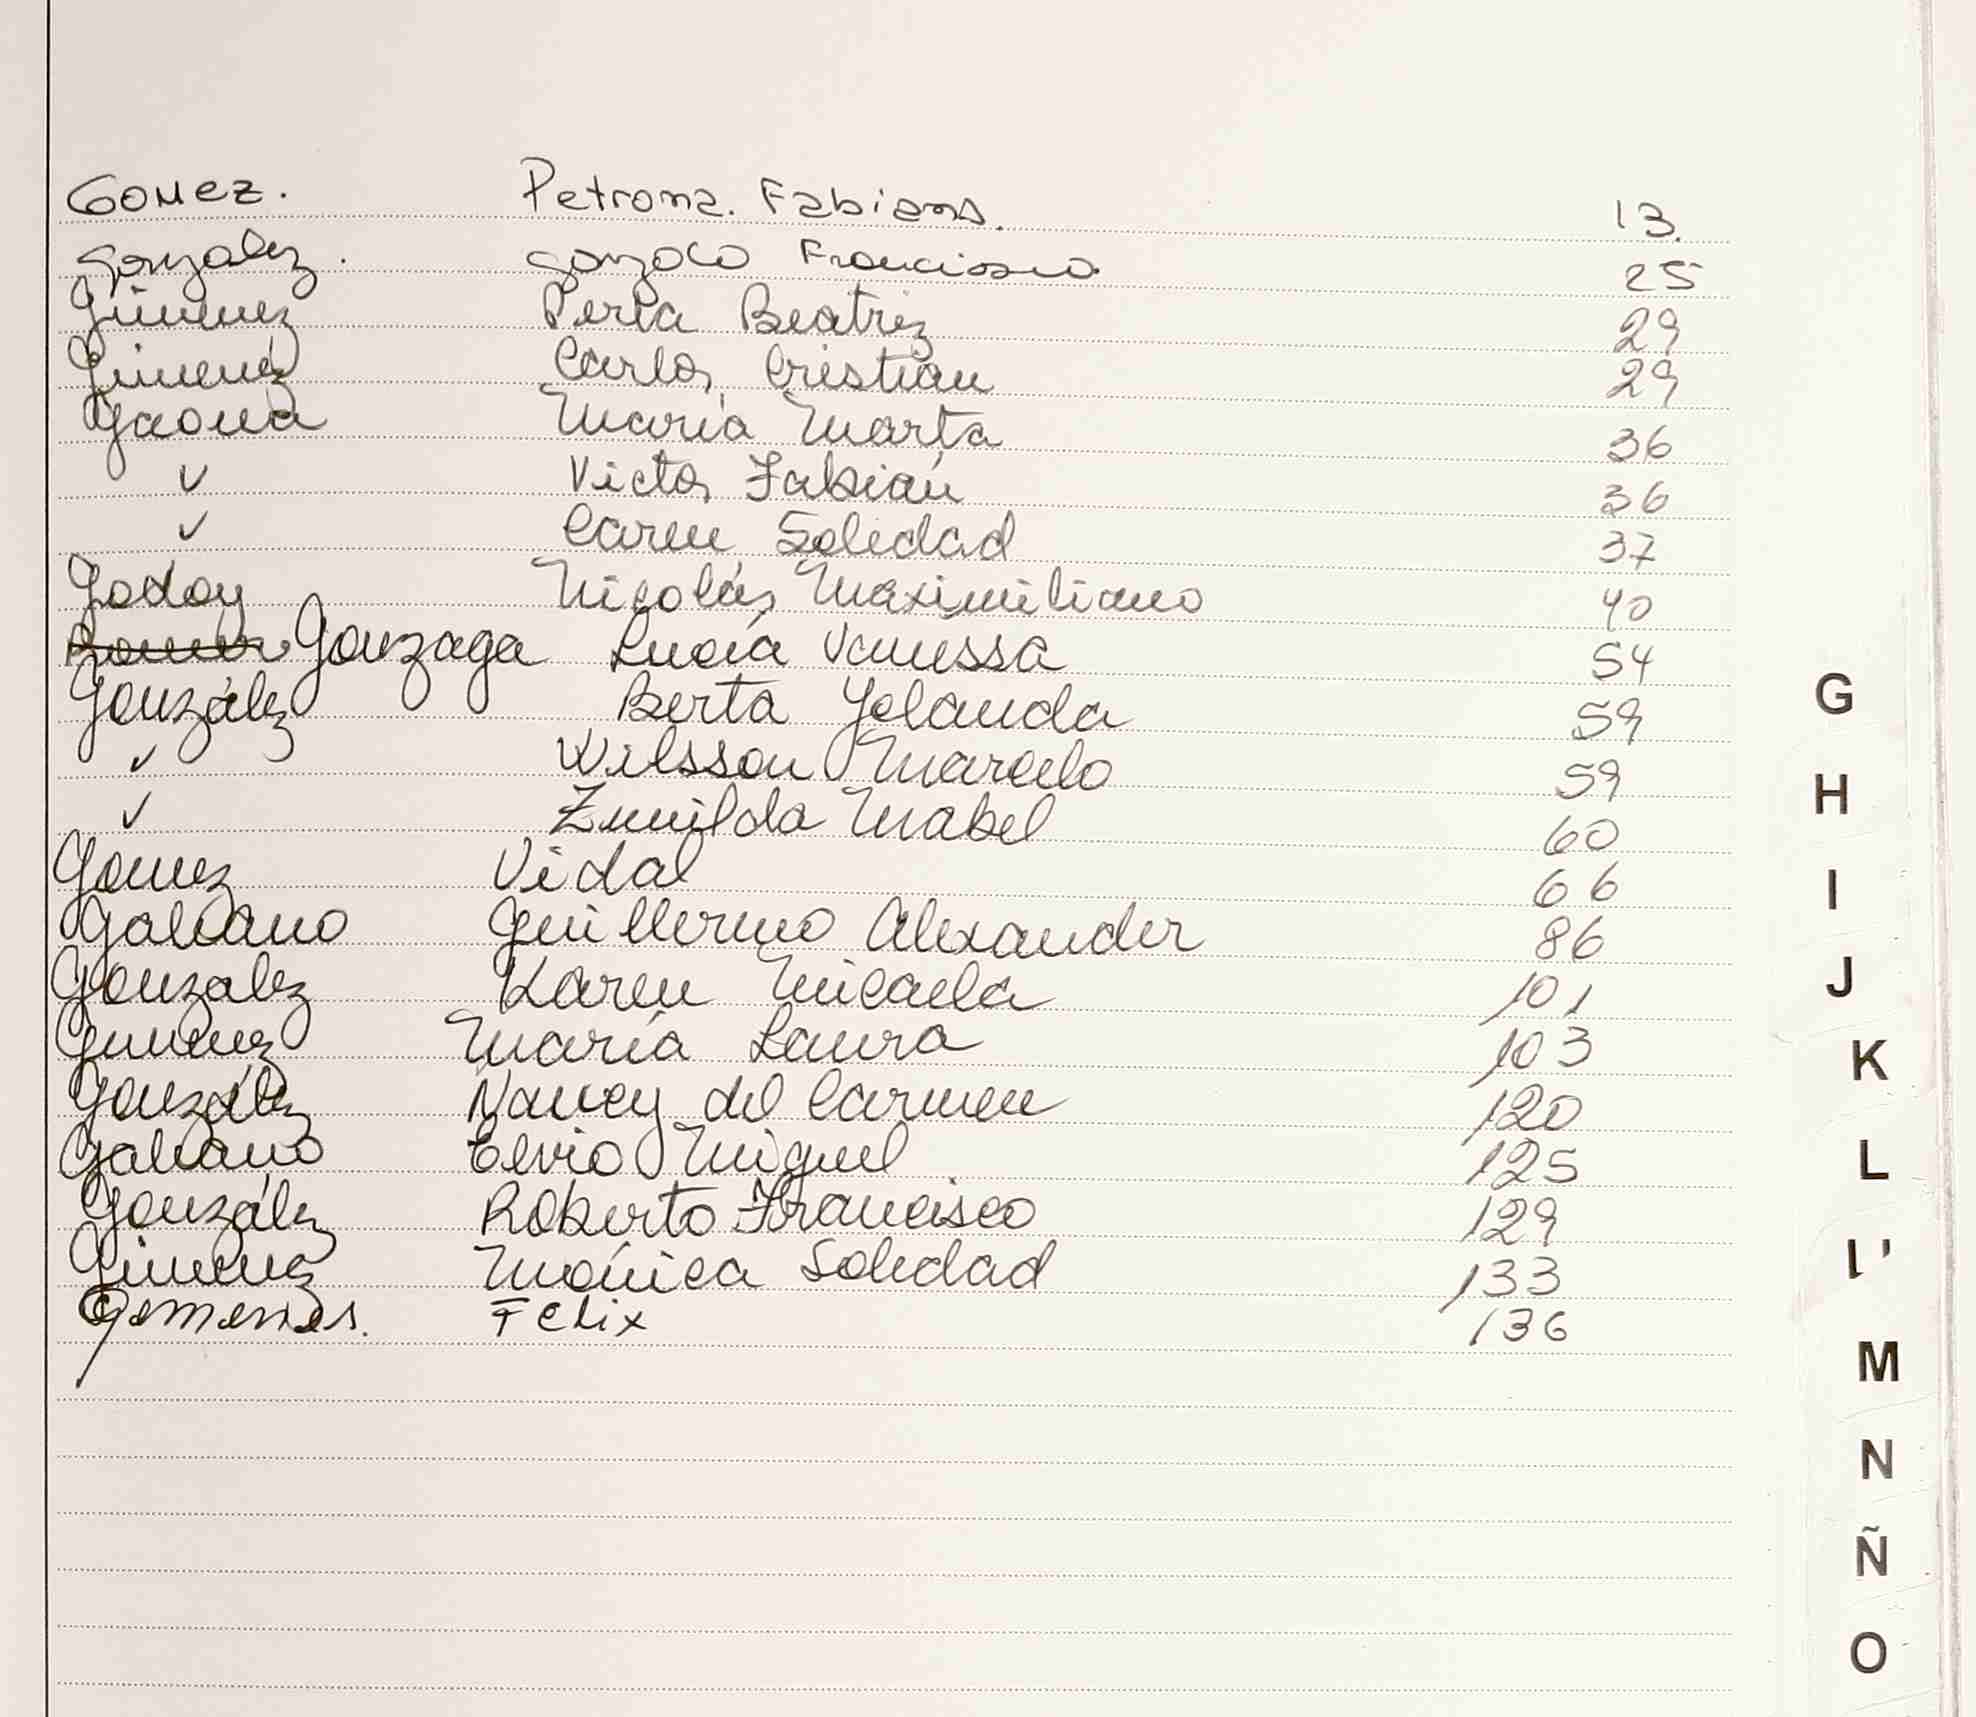 Gomez. Petrona. Fabiana. 13.
Gonzalez. Gonzalo Francisco 25
Gimenez Perla Beatriz 29
Gimenez Carlos Cristian 29
Gaona María Marta 36
✓ Victor Fabián 36
✓ Caren Soledad 37
Godoy Nicolás Maximiliano 40
Gonzaga Lucía Vanessa 54
González Berta Yolanda 59
✓ Wilsson Marcelo 59
✓ Zunilda Mabel 60
Gomez Vidal 66
Galeano Guillermo Alexander 86
Gonzalez Karen Micaela 101
Gimenez María Laura 103
González Nancy del Carmen 120
Galeano Elvio Miguel 125
González Roberto Francisco 129
Gimenez Mónica Soledad 133
Felix 136
G
H
I
J
K
L
M
N
Ñ
O